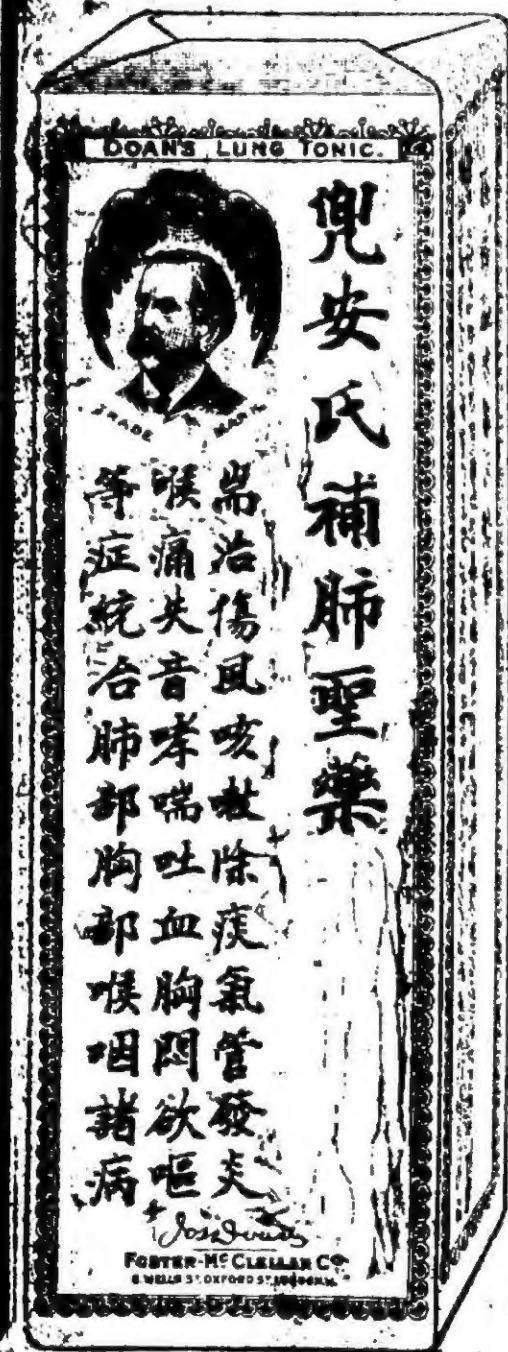 DOAN'S LUNG TONIC.
兜安氏補肺聖藥
TRADE MARK
耑治傷風咳嗽除痰氣管發炎
喉痛失音哮喘吐血胸悶欲嘔
等症統合肺部胸部喉咽諸病
FOSTER-McCLELLAN Co
8 WELLS ST. OXFORD ST. LONDON.W.